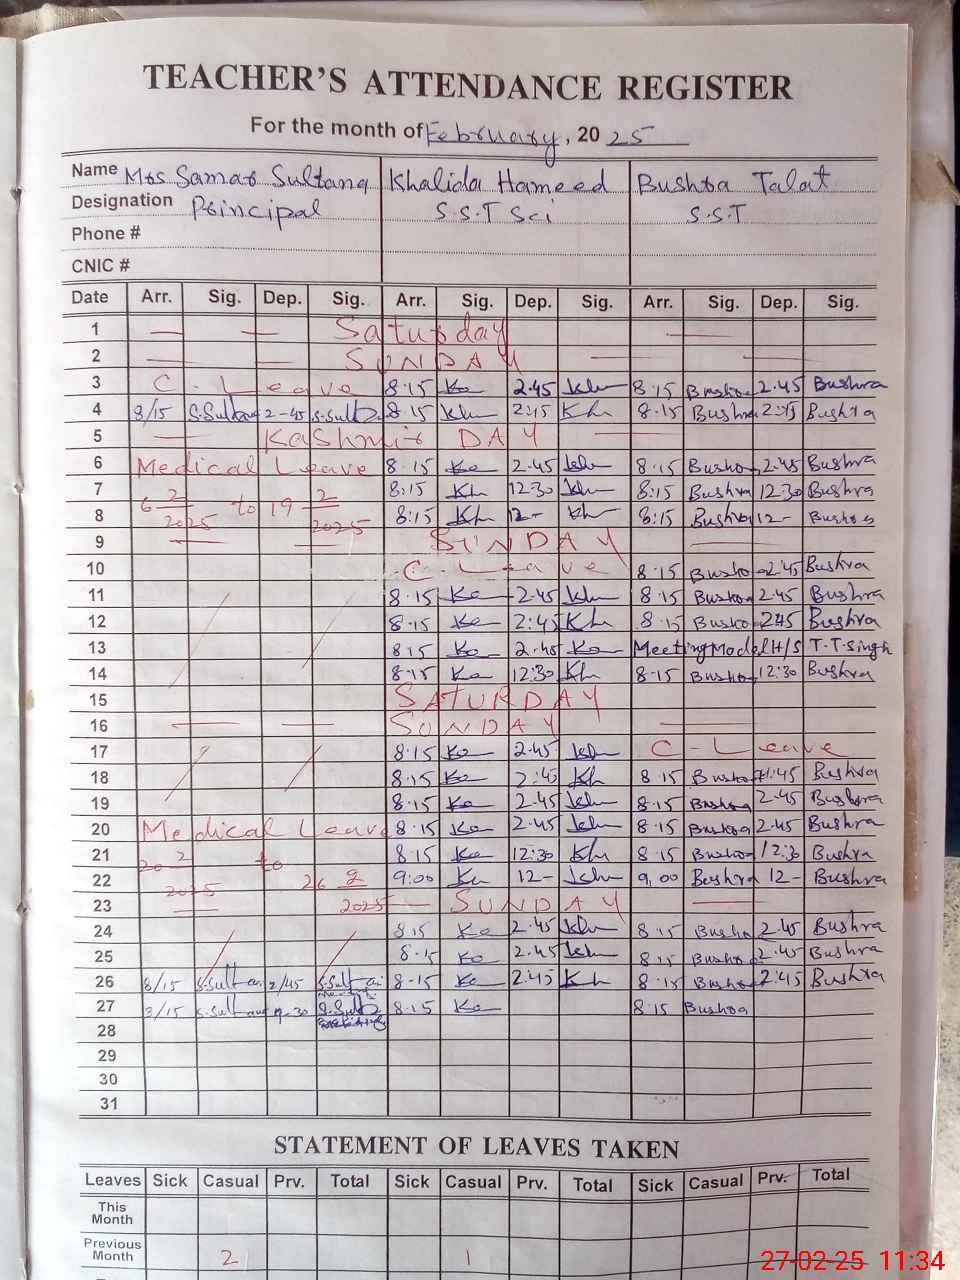 TEACHER'S ATTENDANCE REGISTER
For the month of February, 20 25
Name Mrs Samar Sultana Khalida Hameed Bushra Talat
Designation Principal S.S.T Sci S.S.T
Phone #
CNIC #
Date Arr. Sig. Dep. Sig. Arr. Sig. Dep. Sig. Arr. Sig. Dep. Sig.
1 Saturday
2 SUNDAY
3 C-Leave 8.15 2.45 8.15 Bushra 2.45 Bushra
4 8/15 S.Sultana 2-45 S.Sult 8.15 Kh 2:15 Kh 8.15 Bushra 2:15 Bushra
5 Kashmir DAY
6 Medical Leave 8.15 2.45 8.15 Bushra 2.45 Bushra
7 6 2/2025 to 19 2/2025 8:15 Kh 12.30 8:15 Bushra 12.30 Bushra
8 8:15 Kh 12- Kh 8:15 Bushra 12- Bushra
9 SUNDAY
10 C-Leave 8.15 Bushra 2.45 Bushra
11 8.15 2.45 8.15 Bushra 2.45 Bushra
12 8.15 2:45 Kh 8.15 Bushra 245 Bushra
13 8.15 2.45 Meeting Model H/S T.T.Singh
14 8.15 12:30 Kh 8.15 Bushra 12:30 Bushra
15 SATURDAY
16 SUNDAY
17 8.15 2.45 C-Leave
18 8.15 2:45 Kh 8.15 Bushra Bushra
19 8.15 2.45 8.15 Bushra 2.45 Bushra
20 Medical Leave 8.15 2.45 8.15 Bushra 2.45 Bushra
21 20 2/2025 to 26 2/2025 8.15 12:30 Kh 8.15 Bushra 12:30 Bushra
22 9:00 12- 9.00 Bushra 12- Bushra
23 SUNDAY
24 8.15 2.45 8.15 Bushra 2.45 Bushra
25 8.15 2.45 8.15 Bushra 2.45 Bushra
26 8/15 S.Sultana 2/45 S.Sultana 8.15 2.45 Kh 8.15 Bushra 2.45 Bushra
27 S.Sultana S.Sult 8.15 8.15 Bushra
28
29
30
31
STATEMENT OF LEAVES TAKEN
Leaves Sick Casual Prv. Total Sick Casual Prv. Total Sick Casual Prv. Total
This Month
Previous Month 2 1
27-02-25 11:34